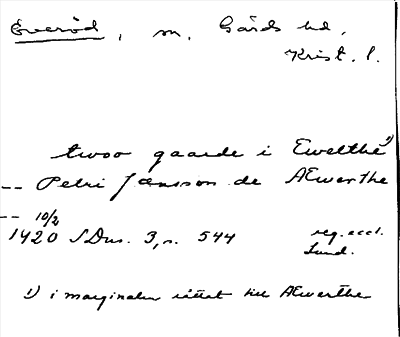 Everöd, m, Gärds hd,
Krist. l.
twoo gaarde i Ewelthe 1)
-- Petri Jensson de AEwerthe
-- 10/2
1420 SDns. 3, s. 544 reg. eccl.
Lund.
1) i marginalen rättat till AEwerthe